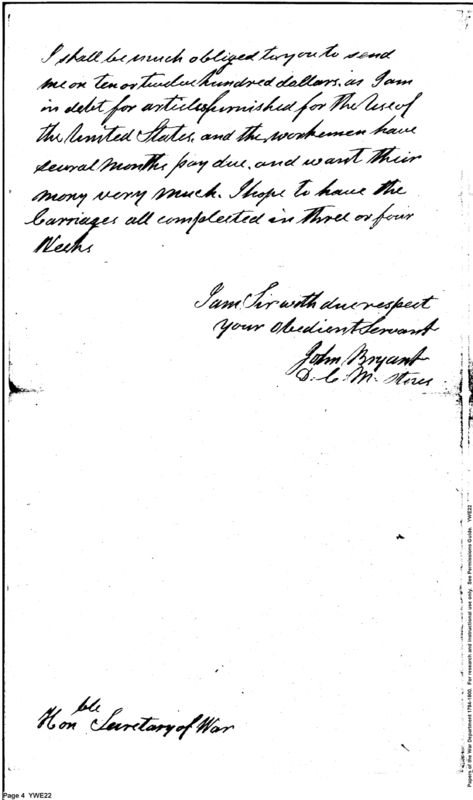 I shall be much obliged to you to send
me on ten or twelve hundred dollars, as I am
in debt for articles furnished for the Use of
the United States, and the workemen have
several months pay due, and want their
mony very much. I hope to have the
Carriages all complected in three or four
Weeks
I am Sir with due respect
your Obedient Servant
John Bryant
D. C. M. Stores
Honble Secretary of War
Page 4 YWE22
Papers of the War Department 1784-1800. For research and instructional use only. See Permissions Guide. YWE22